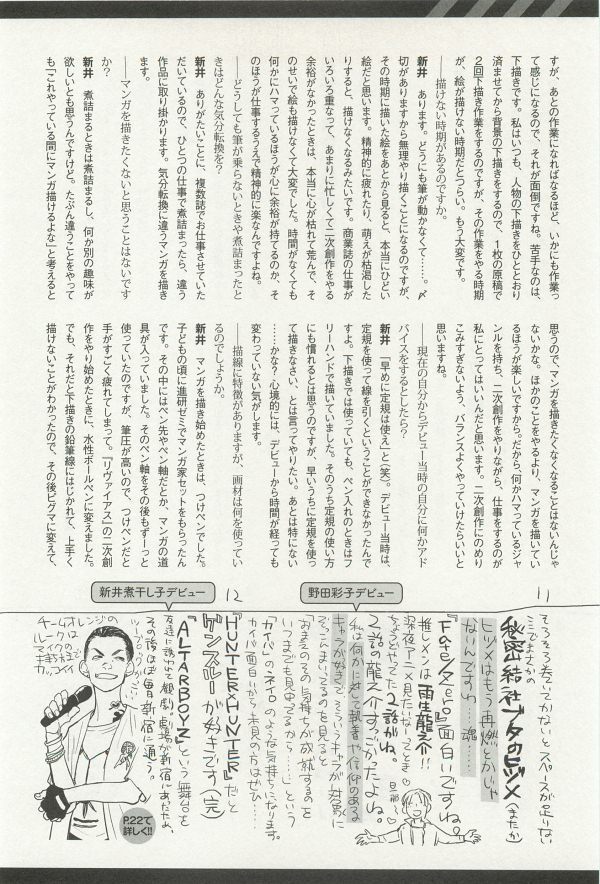 すが、あとの作業になればなるほど、いかにも作業っ
て感じになるので、それが面倒ですね。苦手なのは、
下描きです。私はいつも、人物の下描きをひととおり
済ませてから背景の下描きをするので、1枚の原稿で
2回下描き作業をするのですが、その作業をやる時期
が、絵が描けない時期だとつらい。もう大変です。
──描けない時期があるのですか。
新井　あります。どうにも筆が動かなくて……。〆
切がありますから無理やり描くことになるのですが、
その時期に描いた絵をあとから見ると、本当にひどい
絵だと思います。精神的に疲れたり、萌えが枯渇した
りすると、描けなくなるみたいです。商業誌の仕事が
いろいろ重なって、あまりに忙しくて二次創作をやる
余裕がなかったときは、本当に心が枯れて荒んで、そ
のせいで絵も描けなくて大変でした。時間がなくても
何かにハマっているほうが心に余裕が持てるのか、そ
のほうが仕事するうえで精神的に楽なんですよね。
──どうしても筆が乗らないときや煮詰まったと
きはどんな気分転換を？
新井　ありがたいことに、複数誌でお仕事させていた
だいているので、ひとつの仕事で煮詰まったら、違う
作品に取り掛かります。気分転換に違うマンガを描き
ます。
──マンガを描きたくないと思うことはないです
か？
新井　煮詰まるときは煮詰まるし、何か別の趣味が
欲しいとも思うんですけど。たぶん違うことをやって
も「これやっている間にマンガ描けるよな」と考えると
思うので、マンガを描きたくなくなることはないんじゃ
ないかな。ほかのことをやるより、マンガを描いてい
るほうが楽しいですから。だから、何かハマっているジャ
ンルを持ち、二次創作をやりながら、仕事をするのが
私にとってはいいんだと思います。二次創作にのめり
こみすぎないよう、バランスよくやっていけたらいいと
思いますね。
──現在の自分からデビュー当時の自分に何かアド
バイスをするとしたら？
新井　「早めに定規は使え」と（笑）。デビュー当時は、
定規を使って線を引くということができなかったんで
すよ。下描きでは使っていても、ペン入れのときはフ
リーハンドで描いていました。そのうち定規の使い方
にも慣れるとは思うのが、早いうちに定規を使っ
て描きなさい、とは言ってやりたい。あとは特にない
……かな？ 心境的には、デビューから時間が経っても
変わっていない気がします。
──描線に特徴がありますが、画材は何を使ってい
るのでしょうか。
新井　マンガを描き始めたときは、つけペンでした。
子どもの頃に進研ゼミでマンガ家セットをもらったん
です。その中にはペン先やペン軸だとか、マンガの道
具が入っていました。そのペン軸をその後もずーっと
使っていたのですが、筆圧が高いので、つけペンだと
手がすごく疲れてしまって。『リヴァイアス』の二次創
作をやり始めたときに、水性ボールペンに変えました。
でも、それだと下描きの鉛筆線にはじかれて、上手く
描けないことがわかったので、その後ピグマに変えて、
11
野田彩子デビュー
12
新井煮干し子デビュー
そろそろ巻いてかないとスペースが足りない
ここでまさかの
秘密結社ブタのヒヅメ（またか）
ヒヅメはもう再燃とかじゃ
なりんですわ…魂……
『Fate/Zero』面白いですね。
推しメンは雨生龍之介!!
深夜アニメ見たいな～ってときに
ちょうどやってた2話がね。
2話の龍之介すごかったよね。
旦那～♡
私は何かに対して執着や信仰のある
キャラが好きで、そういうキャラが対象に
ぞっこんまいってるのを見ると
「おまえのその気持ちが成就するのを
いつまでも見守ってるから……」という
カイパーのネイロのような気持ちになります。
カイパー面白いから未見の方はぜひ…
『HUNTER×HUNTER』だと
ゲンスルーが好きです（完）
『ALTAR BOYZ』という舞台を
友達に誘われて観劇し、劇場が新宿にあったため、
その後ほぼ毎日新宿に通う。
チームオレンジの
ルーク役の
マキタさん
カッコイイ
ツーブロックがすごい
P.22で
詳しく!!